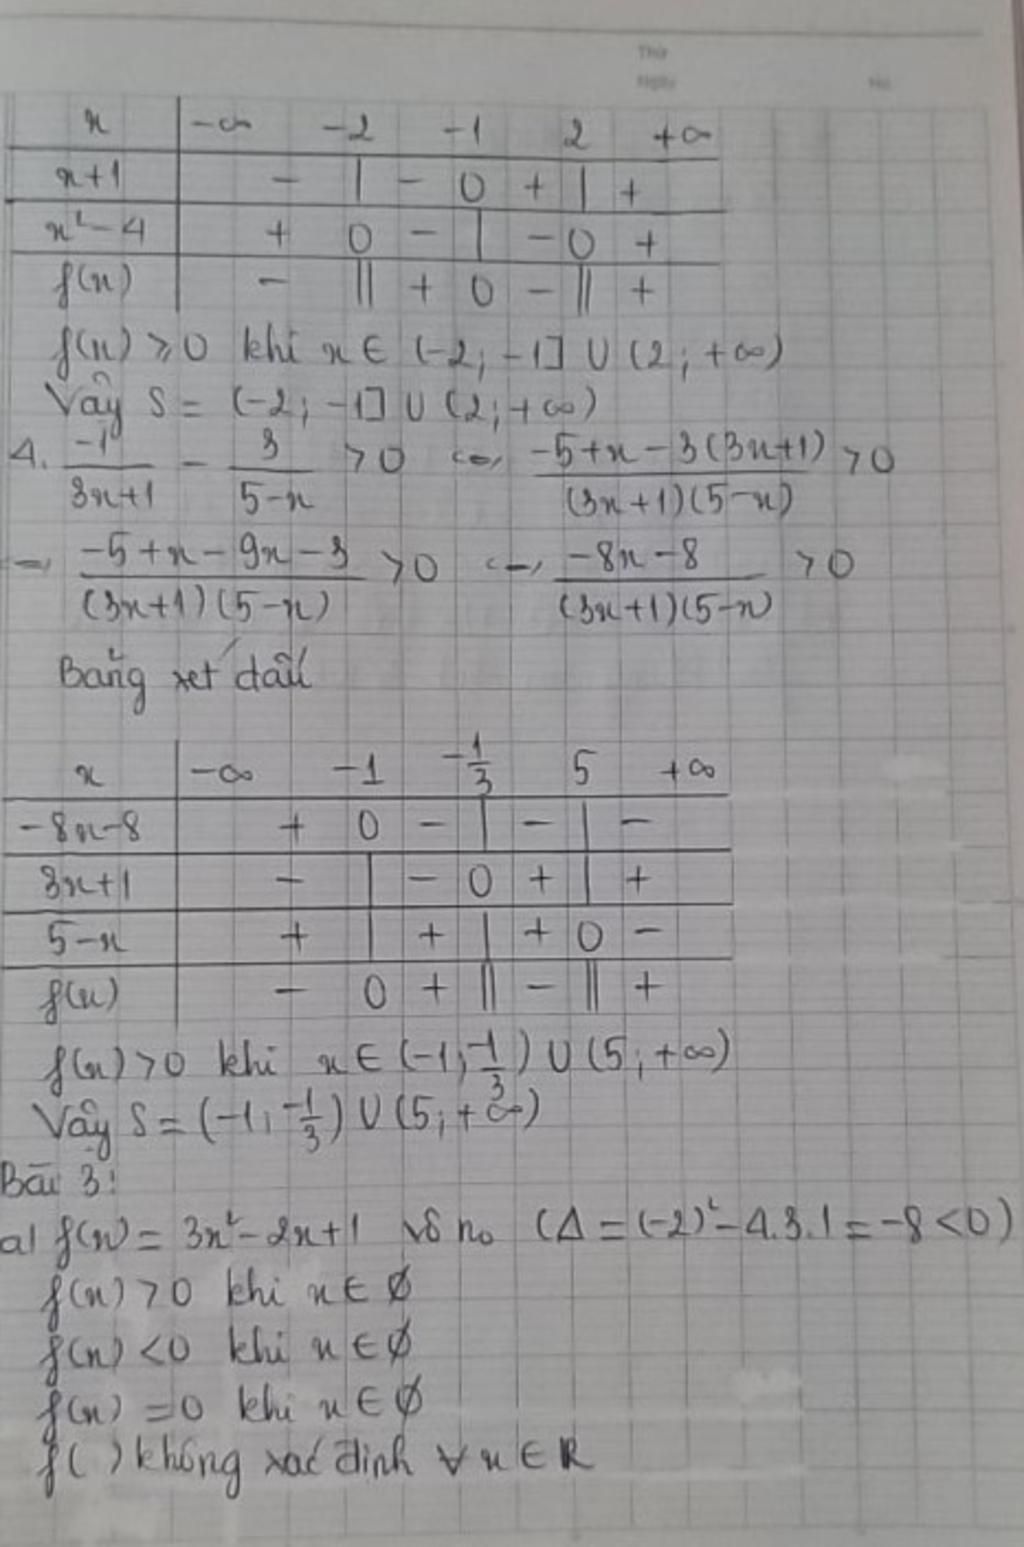 Thứ
Ngày
No
x | -∞ -2 -1 2 +∞
x+1 | - | - 0 + | +
x²-4 | + 0 - | - 0 +
f(x) | - || + 0 - || +
f(x) ≥ 0 khi x ∈ (-2; -1] ∪ (2; +∞)
Vậy S = (-2; -1] ∪ (2; +∞)
4. -1/(3x+1) - 3/(5-x) > 0 <=> (-5+x-3(3x+1))/((3x+1)(5-x)) > 0
=> (-5+x-9x-3)/((3x+1)(5-x)) > 0 <=> (-8x-8)/((3x+1)(5-x)) > 0
Bảng xét dấu
x | -∞ -1 -1/3 5 +∞
-8x-8 | + 0 - | - | -
3x+1 | - | - 0 + | +
5-x | + | + | + 0 -
f(x) | - 0 + || - || +
f(x) > 0 khi x ∈ (-1; -1/3) ∪ (5; +∞)
Vậy S = (-1; -1/3) ∪ (5; +∞)
Bài 3:
a/ f(x) = 3x²-2x+1 vô no (Δ = (-2)²-4.3.1 = -8 < 0)
f(x) > 0 khi x ∈ ∅
f(x) < 0 khi x ∈ ∅
f(x) = 0 khi x ∈ ∅
f( ) không xác định ∀x ∈ R